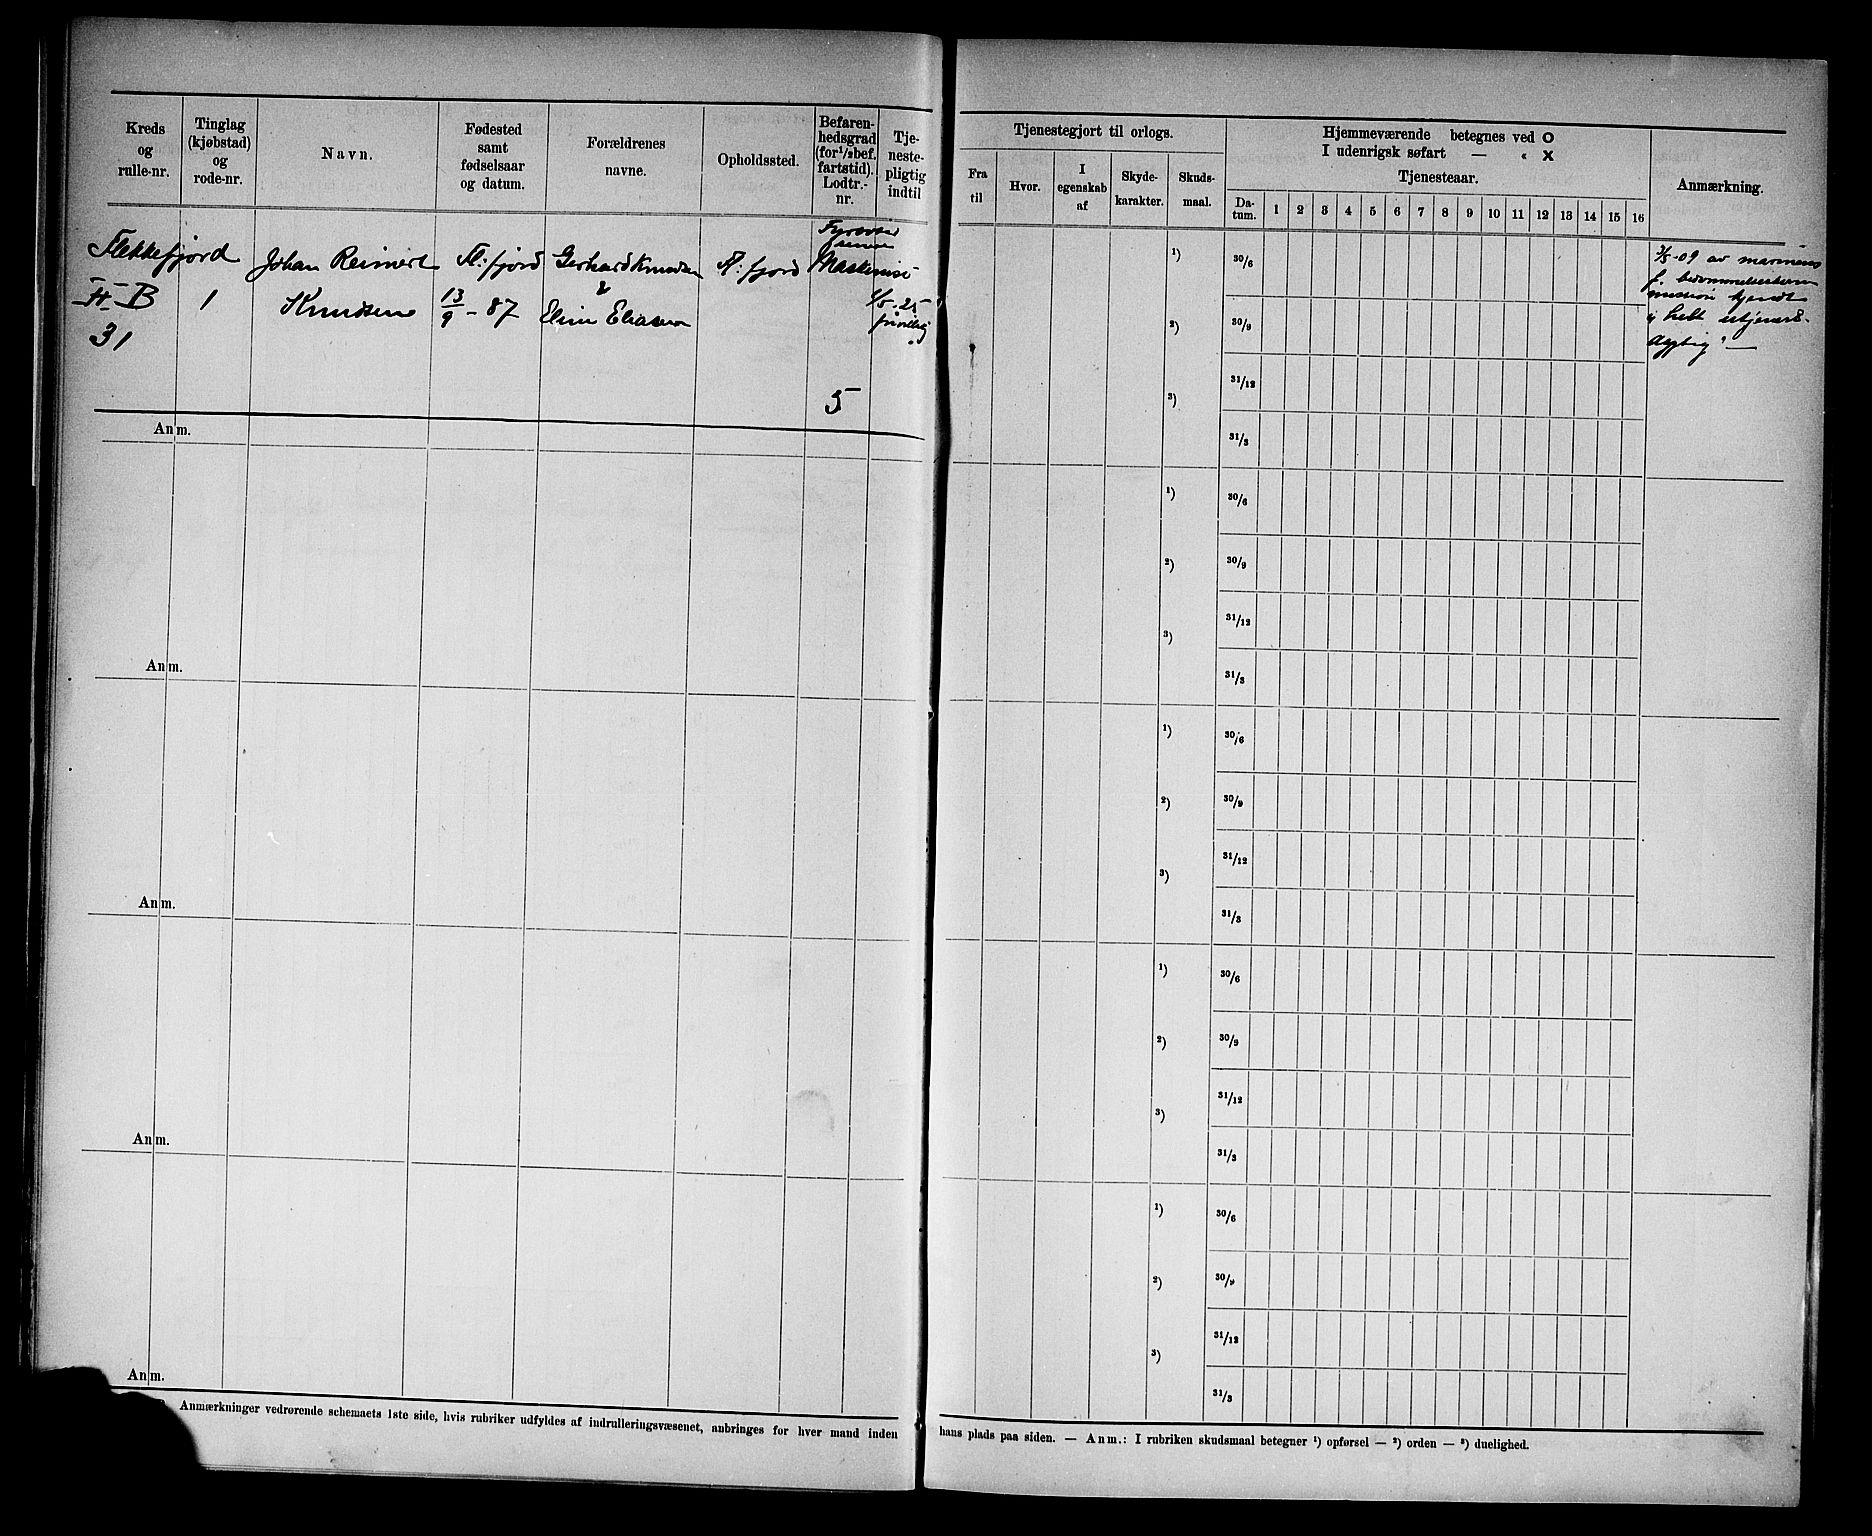 Kreds
og
rulle-nr.
Tinglag
(kjøbstad)
og
rode-nr.
Navn.
Fødested
samt
fødselsaar
og datum.
Forældrenes
navne.
Opholdssted.
Befaren-
hedsgrad
(for ¹/₂ bef.
fartstid).
Lodtr.-
nr.
Tje-
neste-
pligtig
indtil
Flekkefjord
B
31
1
Johan Reinert
Knudsen
Fl:fjord
13/9 - 87
Gerhard Knudsen
&
Elin Eliasen
Fl:fjord
Maskinist
5
frivillig
Anm.
Anm.
Anm.
Anm.
Anm.
Anmærkninger vedrørende schemaets 1ste side, hvis rubriker udfyldes af indrulleringsvæsenet, anbringes for hver mand inden
Tjenestegjort til orlogs.
Fra
til
Hvor.
I
egenskab
af
Skyde-
karakter.
Skuds-
maal.
Hjemmeværende betegnes ved O
I udenrigsk søfart — « X
Tjenesteaar.
Da-
tum. 1 2 3 4 5 6 7 8 9 10 11 12 13 14 15 16
Anmærkning.
¹) 30/6
²) 30/9
31/12
³)
31/3
-09 av marinens
f. bedømmelseskom
mission kjendt
helt utjenest-
dygtig
¹) 30/6
²) 30/9
31/12
³)
31/3
¹) 30/6
²) 30/9
31/12
³)
31/3
¹) 30/6
²) 30/9
31/12
³)
31/3
¹) 30/6
²) 30/9
31/12
³)
31/3
hans plads paa siden. — Anm.: I rubriken skudsmaal betegner ¹) opførsel — ²) orden — ³) duelighed.